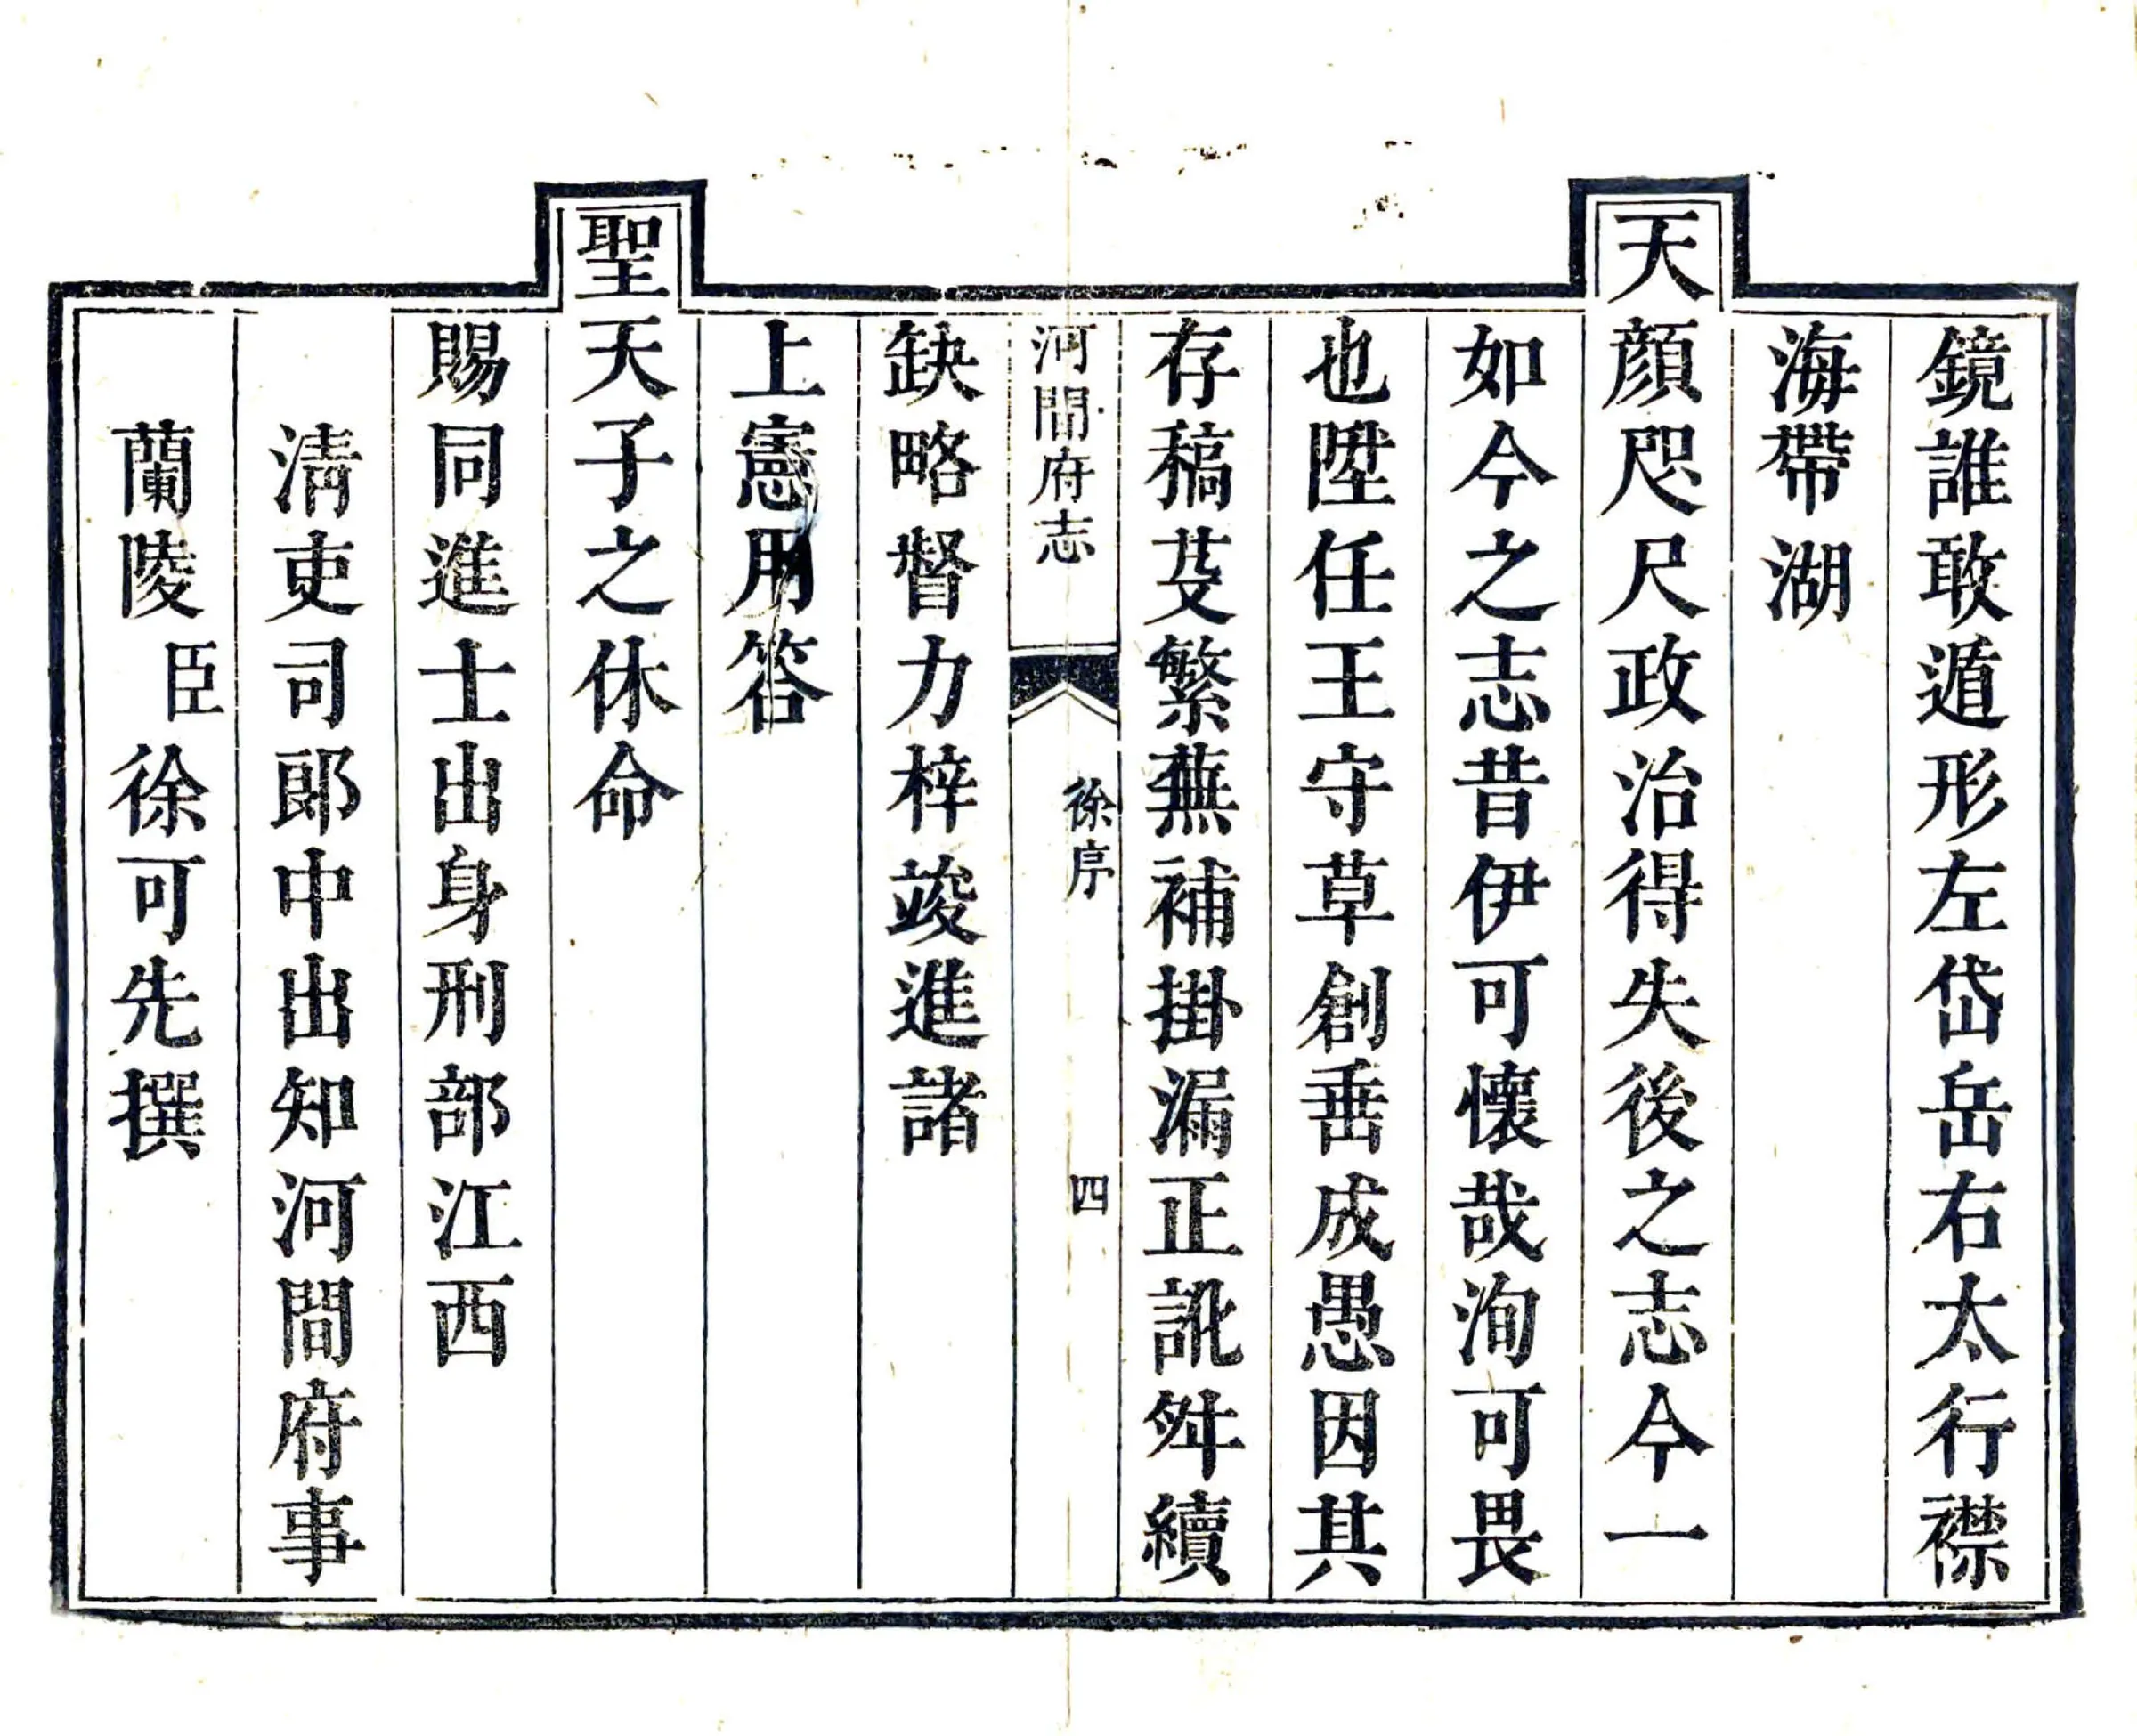 鏡誰敢遁形左岱岳右太行襟
海帶湖
天顔咫尺政治得失後之志今一
如今之志昔伊可懷哉洵可畏
也陞任王守草創垂成愚因其
存稿芟繁蕪補掛漏正訛舛續
河間府志
徐序
四
缺略督力梓竣進諸
上憲用答
聖天子之休命
賜同進士出身刑部江西
清吏司郎中出知河間府事
蘭陵臣徐可先撰